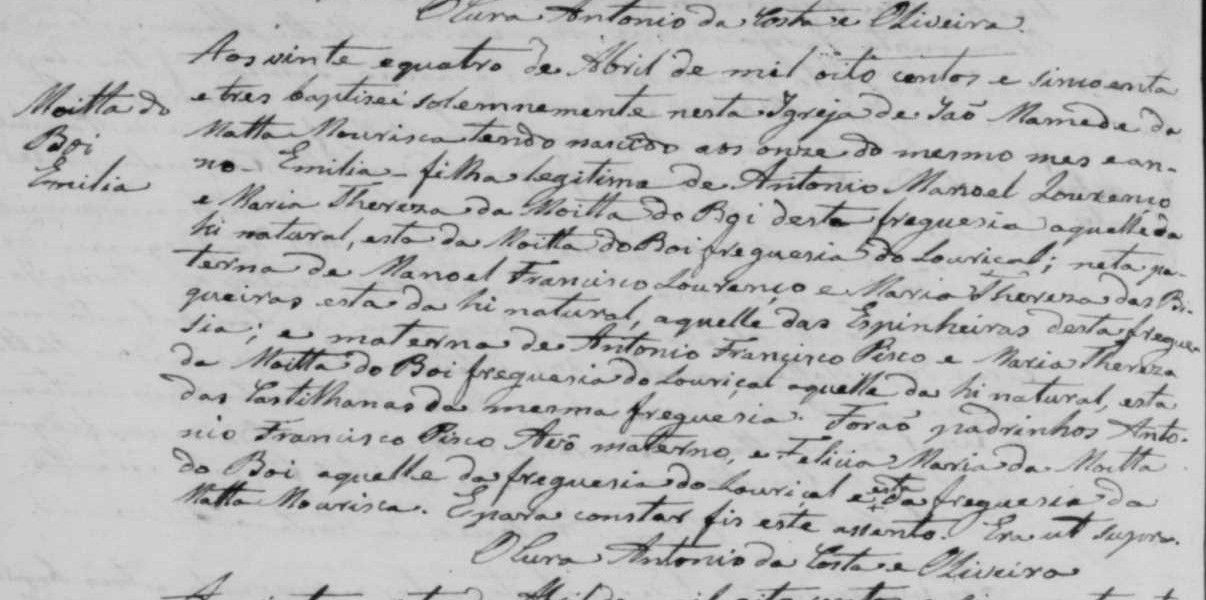 O Cura Antonio da Costa e Oliveira.
Aos vinte e quatro de Abril de mil oito centos e sincoenta
Moitta do
Boi
Emilia
e tres baptisei solemnemente nesta Igreja de Saõ Mamede da
Matta Mourisca tendo nascido aos onze do mesmo mes e an-
no - Emilia - filha legitima de Antonio Manoel Lourenço
e Maria Thereza da Moitta do Boi desta freguesia aquelle da
hi natural, esta da Moitta do Boi freguesia do Louriçal; neta pa-
terna de Manoel Francisco Lourenço e Maria Thereza das Bi-
queiras esta da hi natural, aquelle das Espinheiras desta fregue-
sia; e materna de Antonio Francisco Pisco e Maria Thereza
da Moitta do Boi freguesia do Louriçal aquelle da hi natural, esta
das Castilhanas da mesma freguesia. Foraõ padrinhos Anto-
nio Francisco Pisco Avô materno, e Felicia Maria da Moitta
do Boi aquelle da freguesia do Louriçal e esta da freguesia da
Matta Mourisca. E para constar fis este assento. Era ut supra.
O Cura Antonio da Costa e Oliveira